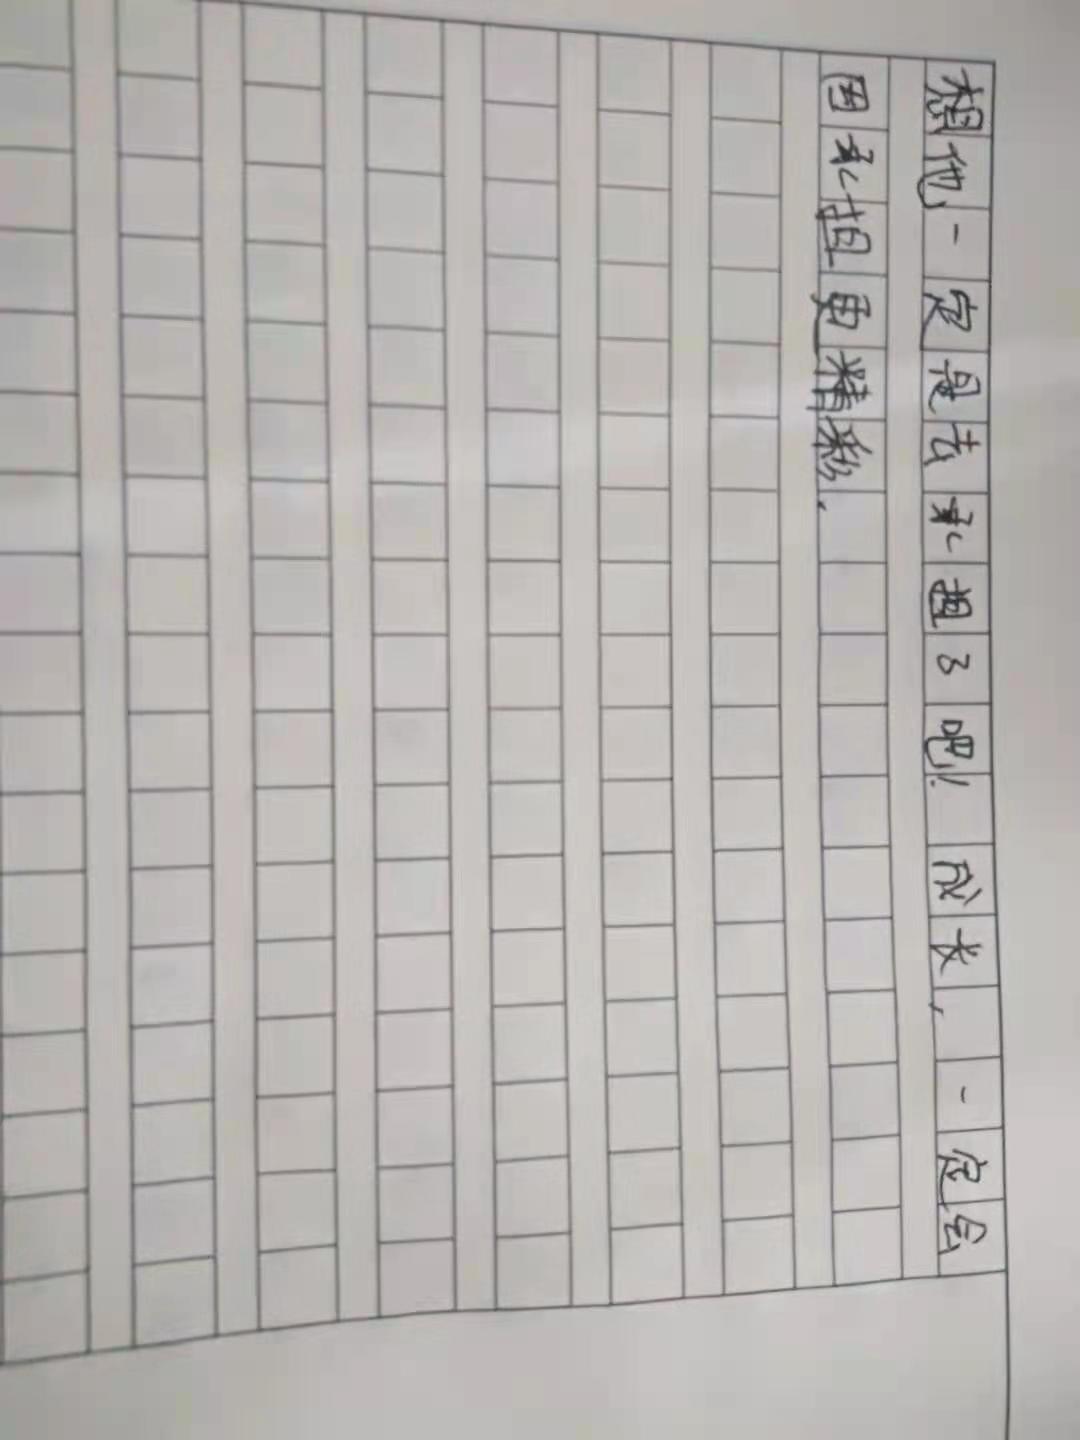 想他一定是去承担了吧!成长,一定会
因承担更精彩.